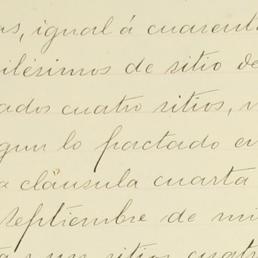 as, igual á cuarenta
ilésimos de sitio de
ados cuatro sitios,
gun lo pactado en
a cláusula cuarta
septiembre de mi
un sitios cuatro